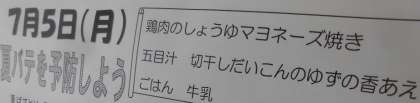 7月5日(月)
夏バテを予防しよう
鶏肉のしょうゆマヨネーズ焼き
五目汁　切干しだいこんのゆずの香あえ
ごはん　牛乳